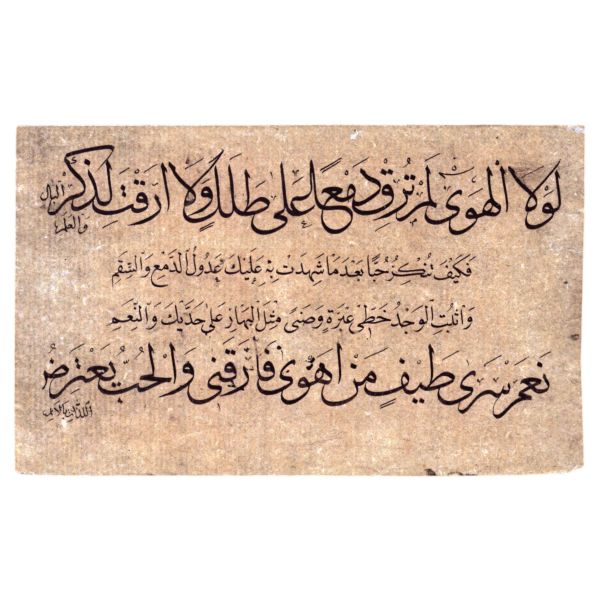 لَوْلَا الْهَوٰى لَمْ تُرِقْ دَمْعًا عَلٰى طَلَلٍ وَلَا اَرِقْتَ لِذِكْرِ البان والعلم
فَكَيْفَ تُنْكِرُ حُبًّا بَعْدَ مَا شَهِدَتْ بِهِ عَلَيْكَ عُدُولُ الدَّمْعِ وَالسَّقَمِ
وَاَثْبَتَ الْوَجْدُ خَطَّىْ عَبْرَةٍ وَضَنًى مِثْلَ الْبَهَارِ عَلٰى خَدَّيْكَ وَالنَّعَمِ
نَعَمْ سَرٰى طَيْفُ مَنْ اَهْوٰى فَاَرَّقَنِى وَالْحُبُّ يَعْتَرِضُ اللذات بالالم